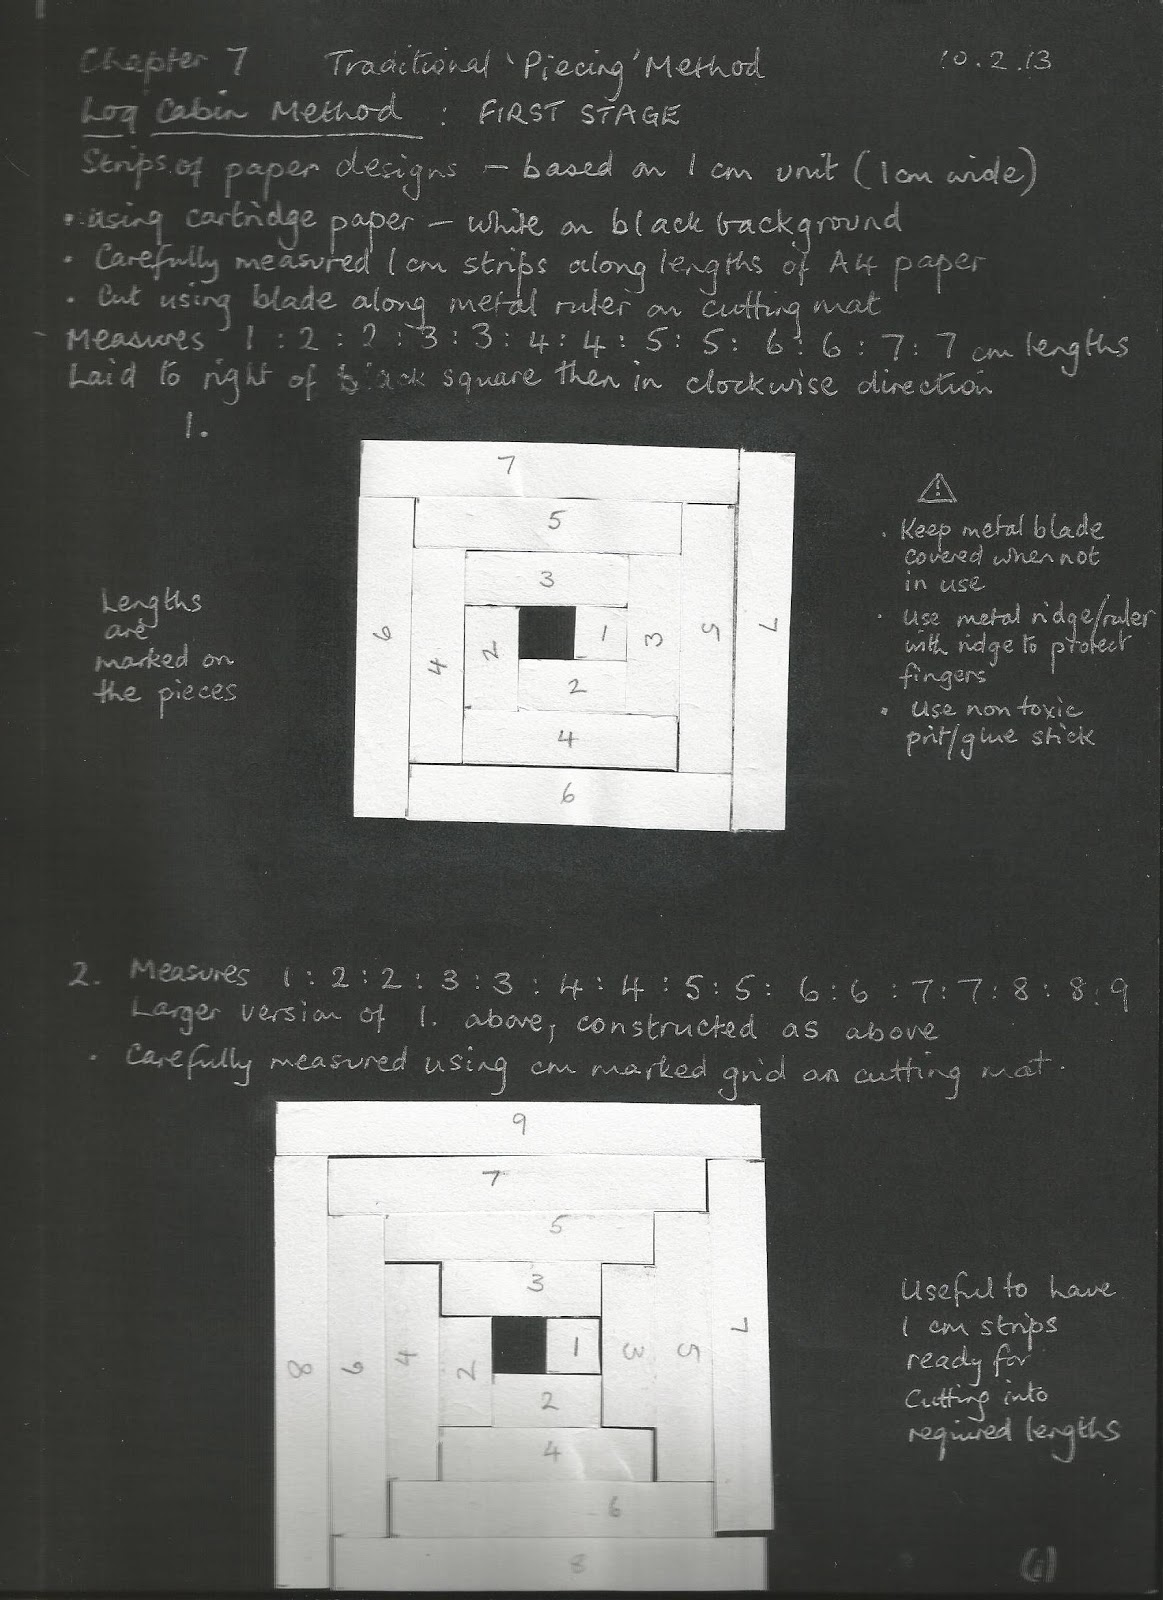 Chapter 7 Traditional 'Piecing' Method 10.2.13
Log Cabin Method : FIRST STAGE
Strips of paper designs – based on 1 cm unit (1cm wide)
• using cartridge paper – white on black background
• Carefully measured 1 cm strips along lengths of A4 paper
• Cut using blade along metal ruler on cutting mat
Measures 1 : 2 : 2 : 3 : 3 : 4 : 4 : 5 : 5 : 6 : 6 : 7 : 7 cm lengths
Laid to right of black square then in clockwise direction
1.
7
5
3
6
4
2
1
3
5
7
2
4
6
Lengths
are
marked on
the pieces
⚠
• Keep metal blade
covered when not
in use
• Use metal ridge/ruler
with ridge to protect
fingers
• Use non toxic
prit/glue stick
2. Measures 1 : 2 : 2 : 3 : 3 : 4 : 4 : 5 : 5 : 6 : 6 : 7 : 7 : 8 : 8 : 9
Larger version of 1. above, constructed as above
• Carefully measured using cm marked grid on cutting mat.
9
7
5
3
8
6
4
2
1
3
5
7
2
4
6
8
Useful to have
1 cm strips
ready for
cutting into
required lengths
(i)